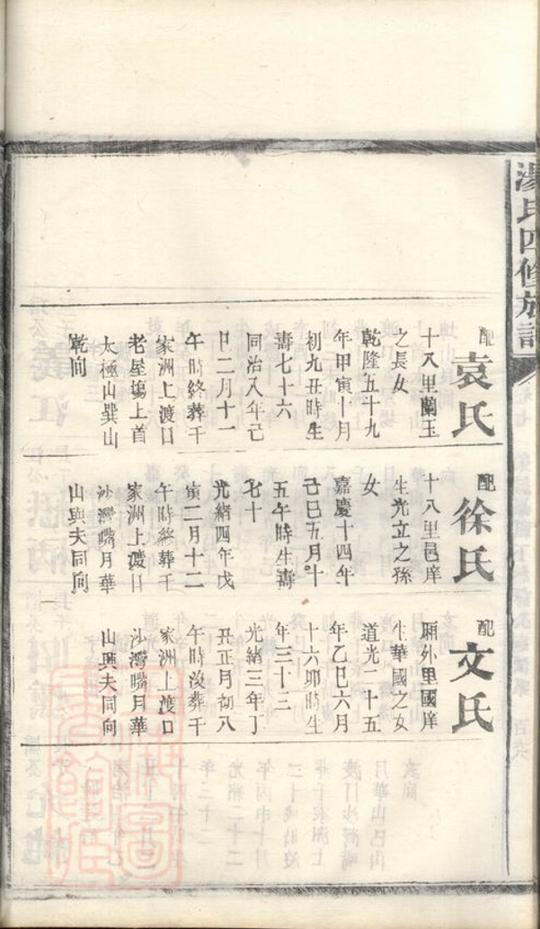 湯氏四修族譜
配
袁氏
十八里蘭玉
之長女
乾隆五十九
年甲寅十月
初九丑時生
壽七十六
同治八年己
巳二月十一
午時終葬干
家洲上渡口
老屋塲上首
太極山巽山
乾向
配
徐氏
十八里邑庠
生光立之孫
女
嘉慶十四年
己巳五月十
五午時生壽
七十
光緒四年戊
寅二月十二
午時終葬干
家洲上渡口
沙灣嘴月華
山與夫同向
配
文氏
厢外里國庠
生華國之女
道光二十五
年乙巳六月
十六卯時生
年三十三
光緒三年丁
丑正月初八
午時没葬干
家洲上渡口
沙灣嘴月華
山與夫同向